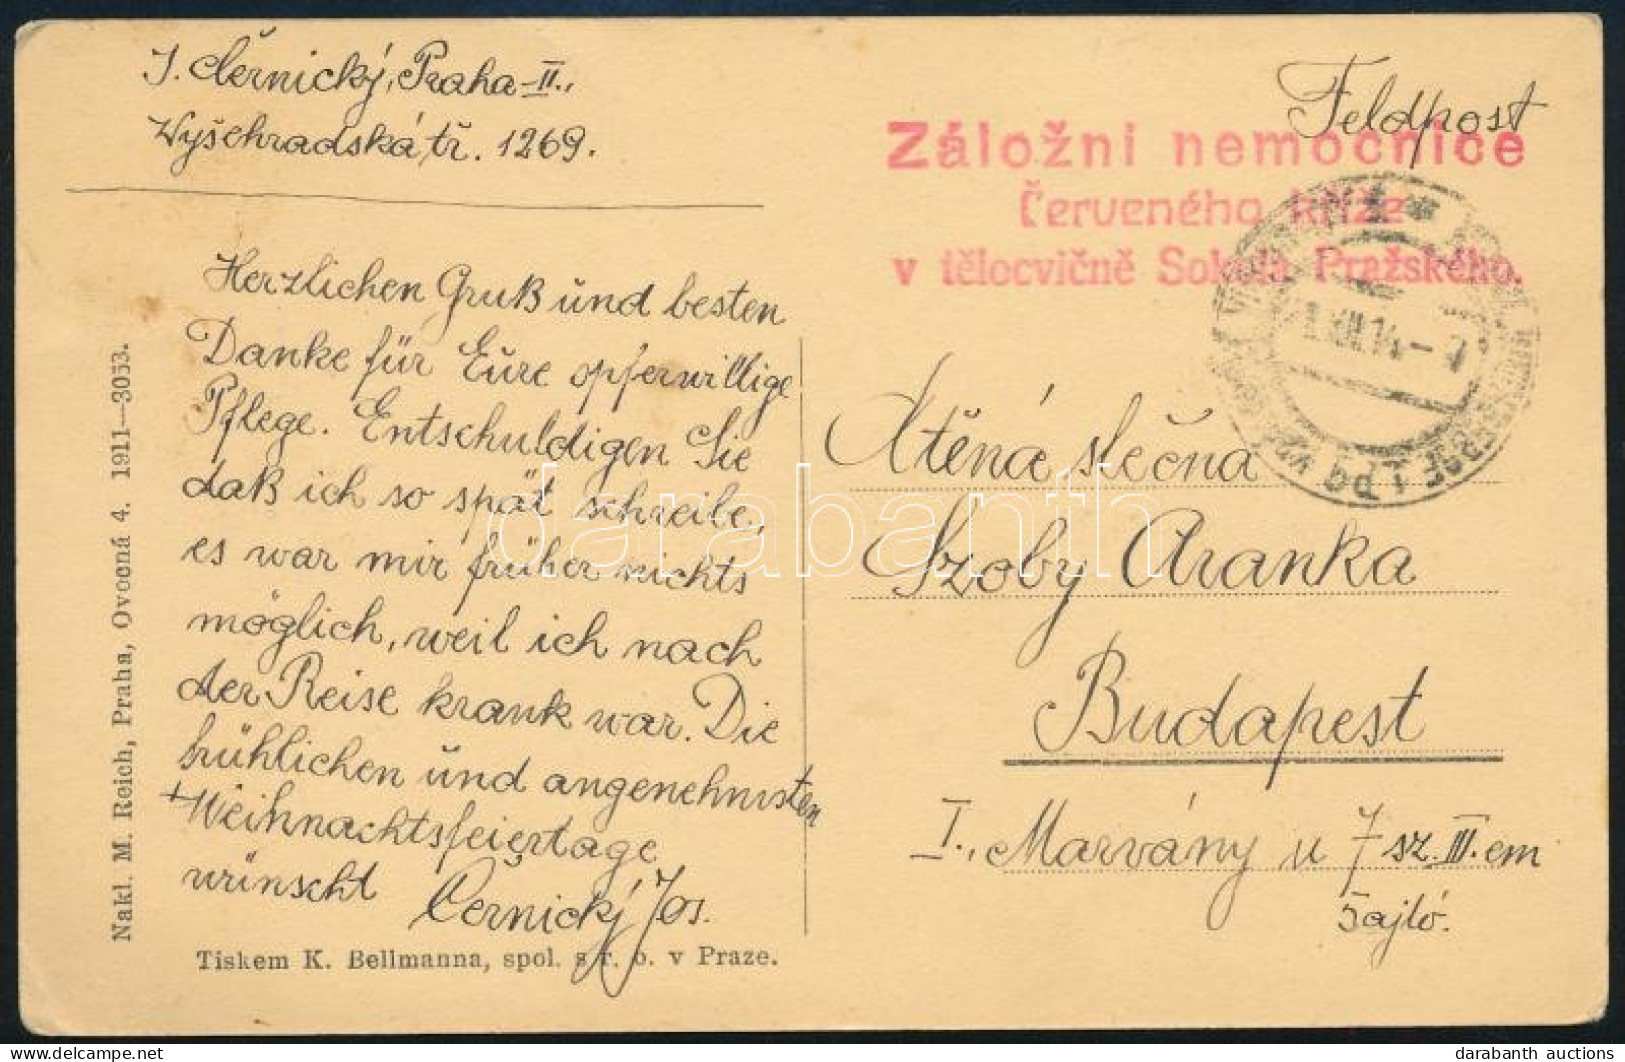 J. Černický, Praha-II.,
Vyšehradská tř. 1269.
Feldpost
Záložní nemocnice
Červeného kříže
v tělocvičně Sokola Pražského.
Herzlichen Gruß und besten
Danke für Eure opferwillige
Pflege. Entschuldigen Sie
daß ich so spät schreibe,
es war mir früher nichts
möglich, weil ich nach
der Reise krank war. Die
frühlichen und angenehmsten
Weihnachtsfeiertage
wünscht Černický Jos.
Ctěná slečna
Szoby Aranka
Budapest
I., Marvány u 7 sz. III. em
5 ajtó.
Nakl. M. Reich, Praha, Ovocná 4. 1911—3053.
Tiskem K. Bellmanna, spol. s r. o. v Praze.
darabanth
darabanth auctions